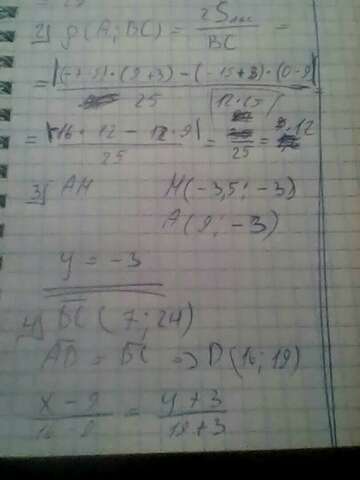 2) ρ(A; BC) = 2S / BC =
= |(-7-9)·(9+3) - (-15+3)·(0-9)| / 25
= |-16·12 - 12·9| / 25 = 12·25 / 25 = 12
3) AM M(-3,5; -3)
A(9; -3)
y = -3
4) BC (7; 24)
AD = BC => D(16; 19)
x - 9 / 16 - 9 = y + 3 / 19 + 3